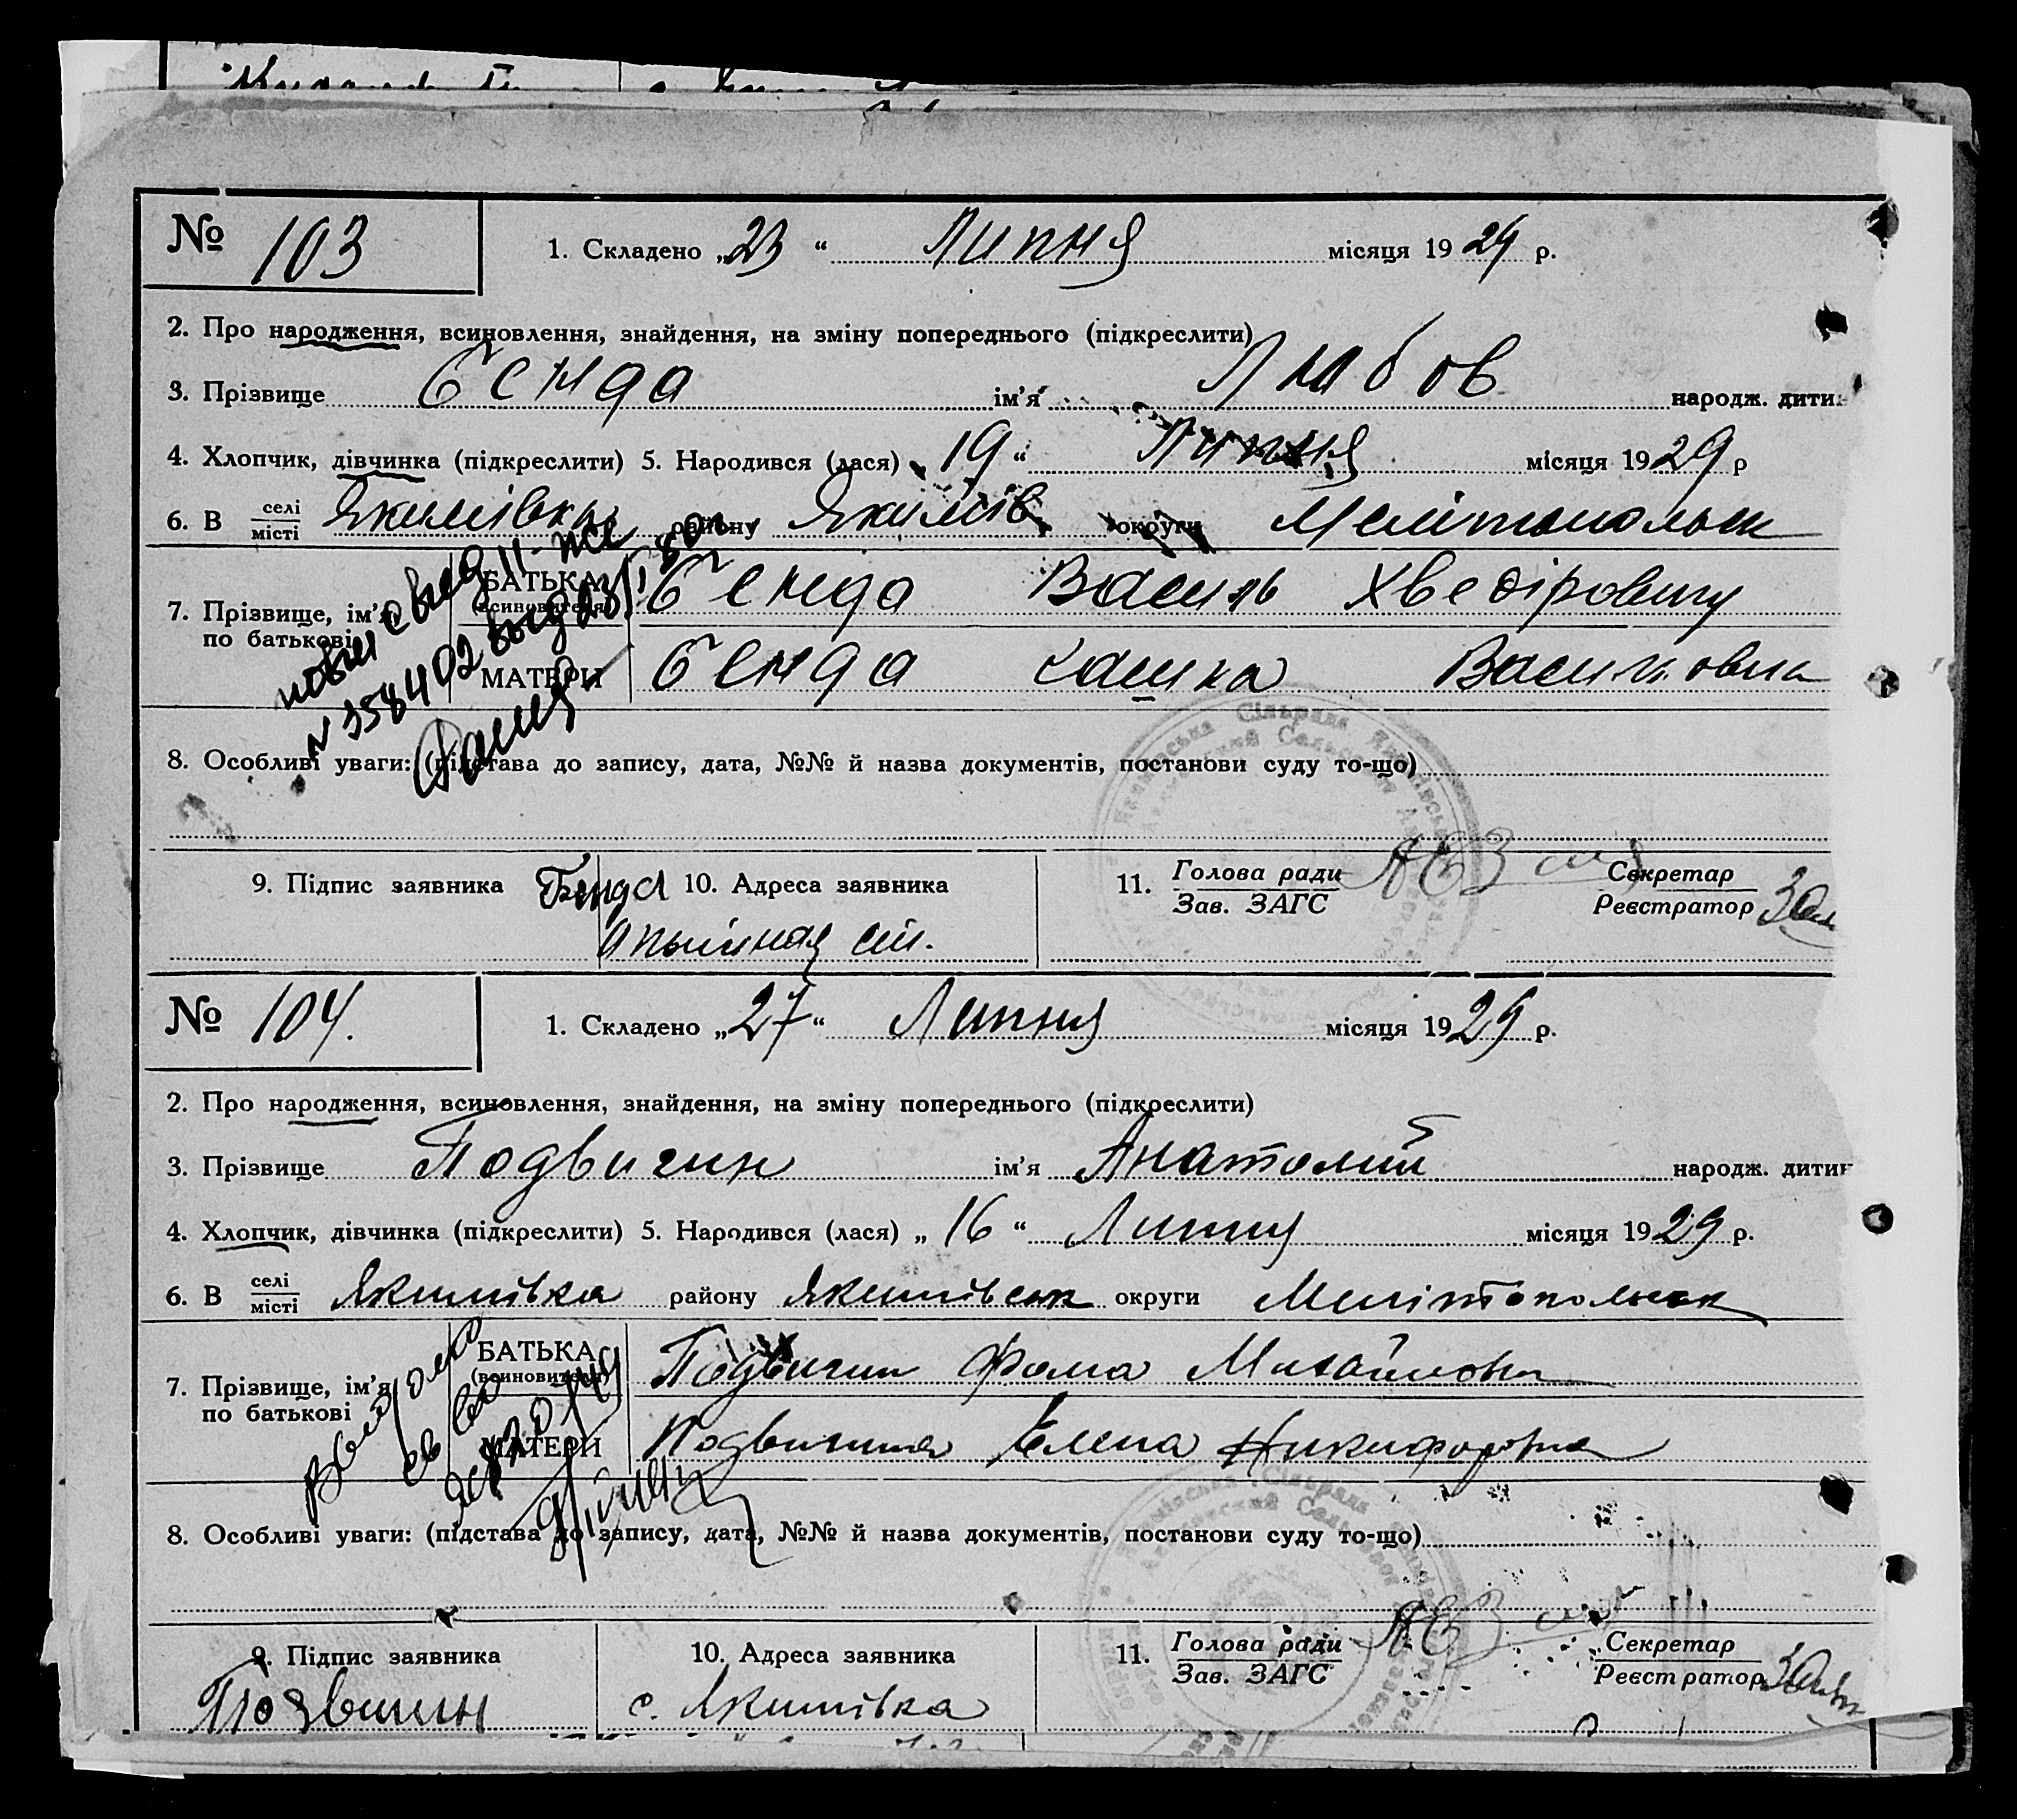 № 103
1. Складено „23“ Липня місяця 1929 р.
2. Про народження, всиновлення, знайдення, на зміну попереднього (підкреслити)
3. Прізвище Бенда ім'я Любов народж. дитин
4. Хлопчик, дівчинка (підкреслити) 5. Народився (лася) „19“ Липня місяця 1929 р
6. В селі/місті Якимівка району Якимів. округи Мелітопольск
7. Прізвище, ім'я по батькові
БАТЬКА (всиновителя) Бенда Василь Хведірович
МАТЕРИ Бенда Васильовна
8. Особливі уваги: (підстава до запису, дата, №№ й назва документів, постанови суду то-що)
9. Підпис заявника Бенда 10. Адреса заявника
11. Голова ради Зав. ЗАГС Секретар Реєстратор
№ 104.
1. Складено „27“ Липня місяця 1929 р.
2. Про народження, всиновлення, знайдення, на зміну попереднього (підкреслити)
3. Прізвище Подвигин ім'я Анатолий народж. дитин
4. Хлопчик, дівчинка (підкреслити) 5. Народився (лася) „16“ Липня місяця 1929 р.
6. В селі/місті Якимівка району Якимівськ округи Мелітопольск
7. Прізвище, ім'я по батькові
БАТЬКА (всиновителя) Подвигин Фома Михайлович
МАТЕРИ Подвигина Елена Никифоровна
8. Особливі уваги: (підстава до запису, дата, №№ й назва документів, постанови суду то-що)
9. Підпис заявника 10. Адреса заявника
с. Якимівка
11. Голова ради Зав. ЗАГС Секретар Реєстратор